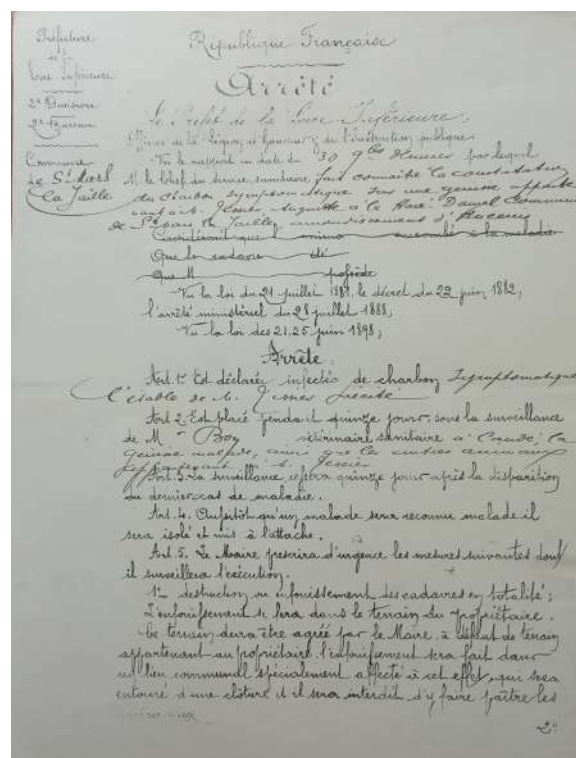 Préfecture
de la
Loire Inférieure
2e Division
2e Bureau
Commune
de St Mars
La Jaille
République Française
Arrêté
Le Préfet de la Loire Inférieure,
de l'Instruction publique
Vu le rapport en date du 30 9bre dernier par lequel
M. le Chef du service sanitaire fait connaître la constatation
du charbon symptomatique sur une génisse apparte
nant à M. Auguste à la Daniel Commune
de St Mars la Jaille, arrondissement d'Ancenis
Considérant que l'animal succombé à la maladie
Que le cadavre été
Que M
Vu la loi du 21 juillet 1881, le décret du 22 juin 1882,
l'arrêté ministériel du 28 juillet 1888,
Vu la loi des 21, 25 juin 1898,
Arrête
Art. 1er Est déclarée infectée de charbon symptomatique
l'étable de M. précité
Art. 2. Est placé pendant quinze jours, sous la surveillance
de M. vétérinaire sanitaire à la
génisse malade, ainsi que les autres animaux
appartenant à M.
Art. 3. La surveillance cessera quinze jours après la disparition
du dernier cas de maladie.
Art. 4. Aussitôt qu'un malade sera reconnu malade il
sera isolé et mis à l'attache.
Art. 5. Le Maire prescrira d'urgence les mesures suivantes dont
il surveillera l'exécution.
1er destruction ou enfouissement des cadavres en totalité ;
L'enfouissement se fera dans le terrain du propriétaire.
Ce terrain devra être agréé par le Maire, à défaut de terrain
appartenant au propriétaire, l'enfouissement sera fait dans
un lieu communal spécialement affecté à cet effet, qui sera
entouré d'une clôture et il sera interdit d'y faire paître les
2°